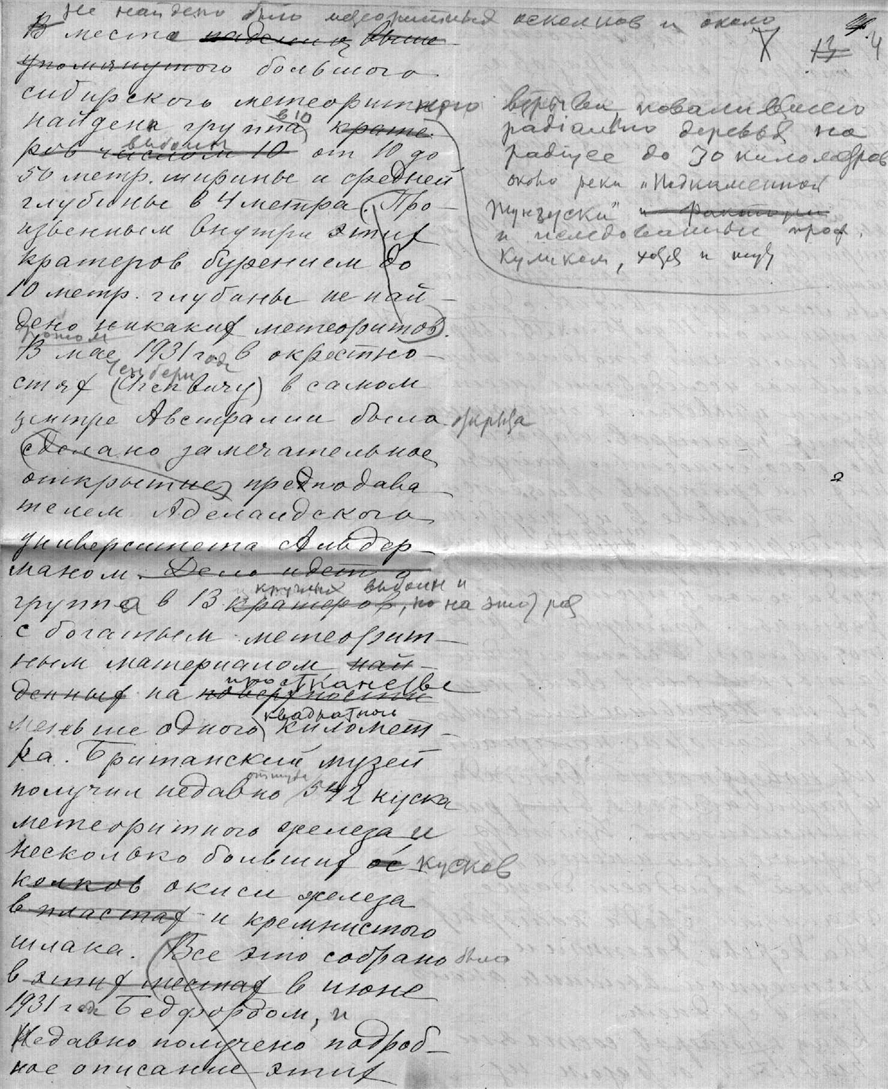 Не найдено было метеоритных осколков и около
В месте падения выше
упомянутого большого
сибирского метеорит ного
найдена группа в 10 крате
ров числом 10 выбоин от 10 до
50 метр. ширины и средней
глубины в 4 метра. (Про
изведенным внутри этих
кратеров бурением до
10 метр. глубины не най
дено никаких метеоритов).
Потом
В мае 1931 года в окрестно
стях Хенбери в самом
центре Австралии было открыта
сделано замечательное
открытие преподава
телем Аделаидского
университета Альдер
маном. Дело идет о
группа в 13 крупных выбоин и
кратеров, но на этот раз
с богатым метеорит
ным материалом най
денных на поверхности пространстве
меньше одного квадратного километ
ра. Британский музей
получил недавно оттуда 542 куска
метеоритного железа и
несколько больших ос кусков
колков окиси железа
в пластах и кремнистого
шлака. (Все это собрано было
в этих местах в июне
1931 года Бедфордом, и
Недавно получено подроб
ное описание этих
13 4
взрыва повалившего
радіально деревья на
радіусе до 30 километров
около реки "Подкаменной
Тунгуски" и фактории
и исследованный проф.
Куликом, хотя и
2